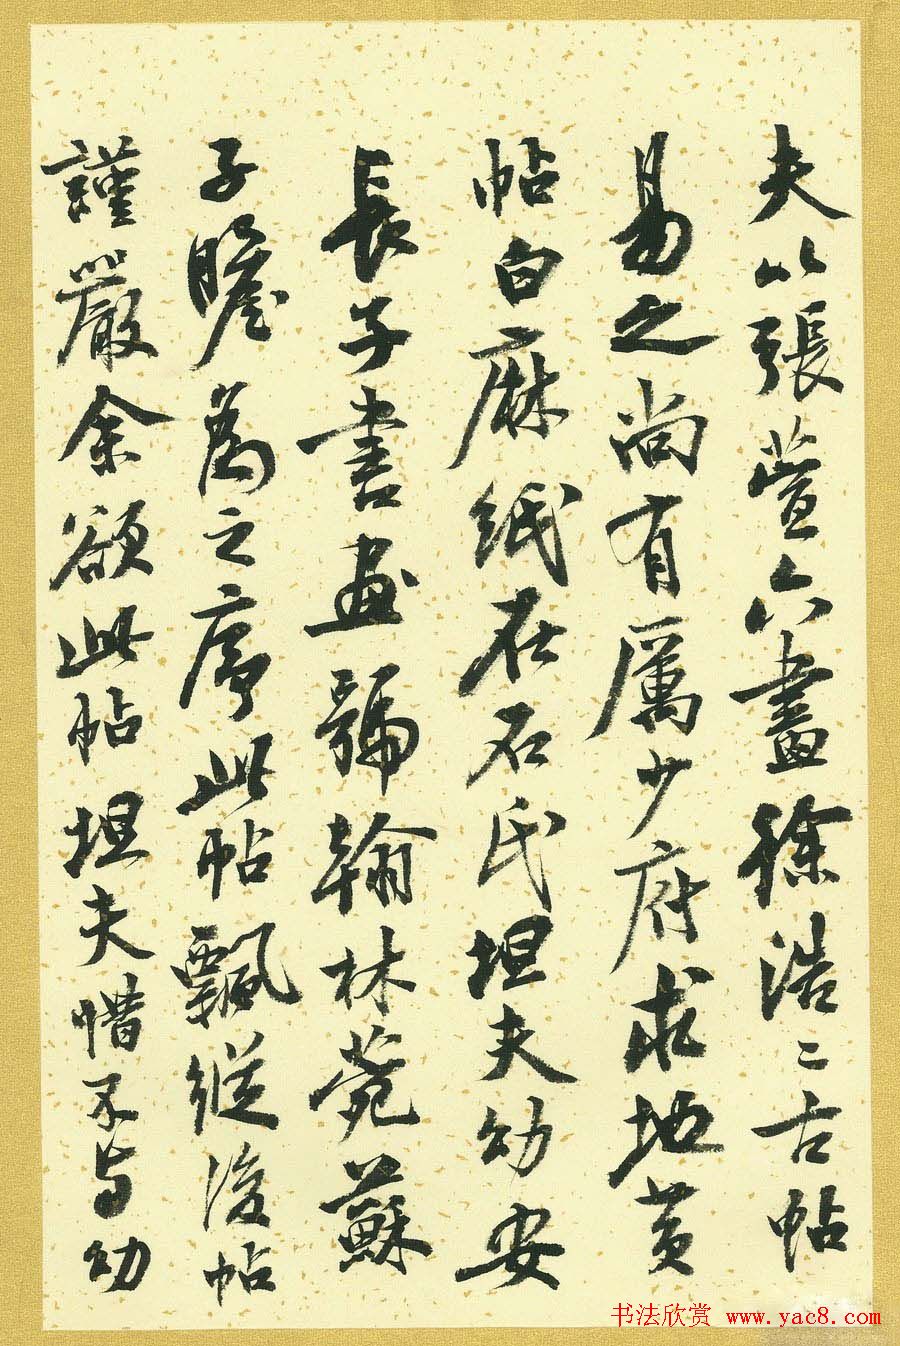 夫以張萱六畫徐浩二古帖
易之尚有厲少府求地黄
帖白麻紙在石氏坦夫幼安
長子書画號翰林苑蘇
子瞻為之序此帖飄縱後帖
謹嚴余欲此帖坦夫惜不与幼
书法欣赏 www.yac8.com